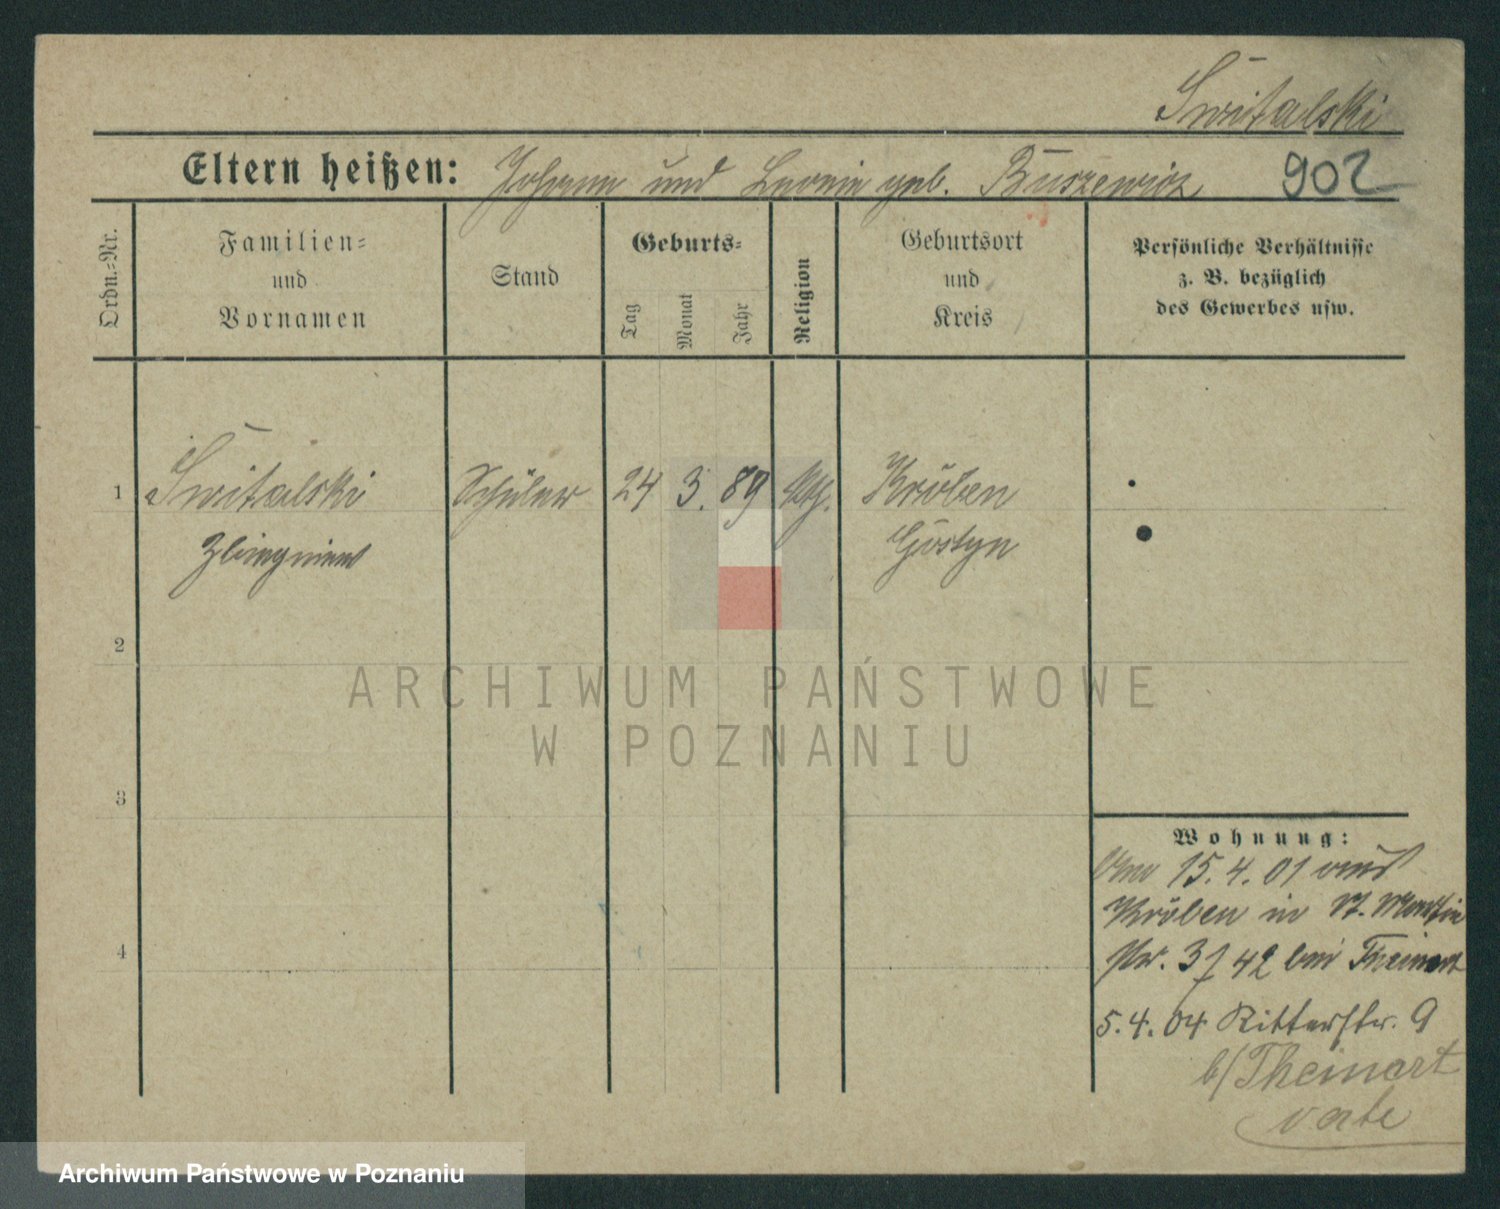 Świtalski
Eltern heißen: Johann und Leonie geb. Buszewicz 902
Ordn.-Nr.
Familien-
und
Vornamen
Stand
Geburts-
Tag
Monat
Jahr
Religion
Geburtsort
und
Kreis
Persönliche Verhältnisse
z. B. bezüglich
des Gewerbes usw.
1 Świtalski Schüler 24 3. 89 kth. Kröben
Zbiegniew Gostyn
2
ARCHIWUM PAŃSTWOWE
W POZNANIU
3
Wohnung:
15.4.01 aus
Kröben in St. Martin
Nr. 37 42 bei Theinert
4
5.4.04 Ritterstr. 9
b/Theinert
Archiwum Państwowe w Poznaniu